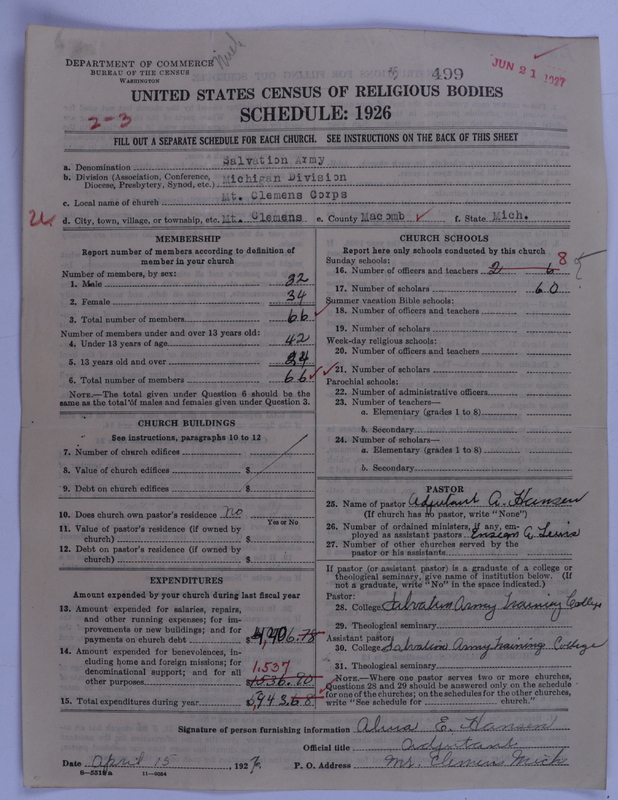 DEPARTMENT OF COMMERCE
BUREAU OF THE CENSUS
WASHINGTON
499
JUN 21 1927
UNITED STATES CENSUS OF RELIGIOUS BODIES
2-3
SCHEDULE: 1926
FILL OUT A SEPARATE SCHEDULE FOR EACH CHURCH. SEE INSTRUCTIONS ON THE BACK OF THIS SHEET
a. Denomination Salvation Army
b. Division (Association, Conference, Diocese, Presbytery, Synod, etc.) Michigan Division
c. Local name of church Mt. Clemens Corps
d. City, town, village, or township, etc. Mt. Clemens e. County Macomb f. State Mich.
MEMBERSHIP
Report number of members according to definition of
member in your church
Number of members, by sex:
1. Male 32
2. Female 34
3. Total number of members 66
Number of members under and over 13 years old:
4. Under 13 years of age 42
5. 13 years old and over 24
6. Total number of members 66
NOTE.—The total given under Question 6 should be the
same as the total of males and females given under Question 3.
CHURCH BUILDINGS
See instructions, paragraphs 10 to 12
7. Number of church edifices
8. Value of church edifices $
9. Debt on church edifices $
10. Does church own pastor's residence no
Yes or No
11. Value of pastor's residence (if owned by
church) $
12. Debt on pastor's residence (if owned by
church) $
EXPENDITURES
Amount expended by your church during last fiscal year
13. Amount expended for salaries, repairs,
and other running expenses; for im-
provements or new buildings; and for
payments on church debt $ 4,406.78
14. Amount expended for benevolences, in-
cluding home and foreign missions; for
denominational support; and for all 1,537
other purposes 1536.90
15. Total expenditures during year 5,943.68
CHURCH SCHOOLS
Report here only schools conducted by this church
Sunday schools: 8
16. Number of officers and teachers 2 6
17. Number of scholars 60
Summer vacation Bible schools:
18. Number of officers and teachers
19. Number of scholars
Week-day religious schools:
20. Number of officers and teachers
21. Number of scholars
Parochial schools:
22. Number of administrative officers
23. Number of teachers—
a. Elementary (grades 1 to 8)
b. Secondary
24. Number of scholars—
a. Elementary (grades 1 to 8)
b. Secondary
PASTOR
25. Name of pastor Adjutant A. Hansen
(If church has no pastor, write "None")
26. Number of ordained ministers, if any, em-
ployed as assistant pastors Ensign A Lewis
27. Number of other churches served by the
pastor or his assistants
If pastor (or assistant pastor) is a graduate of a college or
theological seminary, give name of institution below. (If
not a graduate, write "No" in the space indicated.)
Pastor:
28. College Salvation Army Training College
29. Theological seminary
Assistant pastor:
30. College Salvation Army Training College
31. Theological seminary
NOTE.—Where one pastor serves two or more churches,
Questions 28 and 29 should be answered only on the schedule
for one of the churches; on the schedules for the other churches,
write "See schedule for church."
Signature of person furnishing information Alma E. Hansen
Official title Adjutant
Date April 15, 1927 P. O. Address Mt. Clemens Mich
11—9554